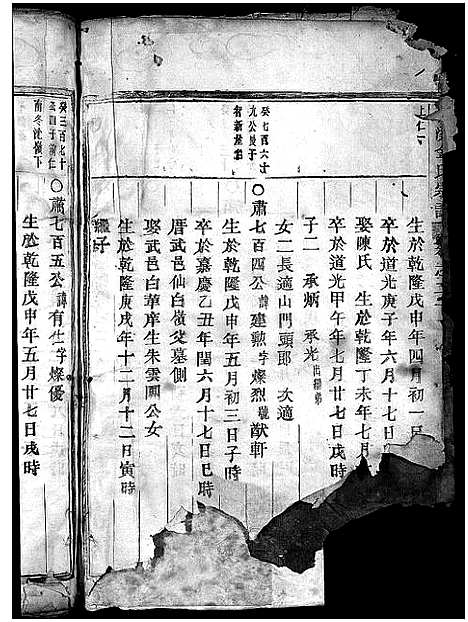 生於乾隆戊申年四月初一日
卒於道光庚子年六月十七日
娶陳氏 生於乾隆丁未年七月
卒於道光甲午年七月廿七日戌時
子二 承炳 承光出繼弟
女二長適山門頭郎 次適
癸七百六十
九公長子
〇肅七百四公諱建勲字燦烈號猷軒
生於乾隆戊申年五月初三日子時
卒於嘉慶乙丑年閏六月十七日巳時
厝武邑仙白嶺父墓側
娶武邑白華庠生朱雲圓公女
生於乾隆庚戌年十二月十二日寅時
繼子
癸三百七十
〇肅七百五公諱有生字燦優
生於乾隆戊申年五月廿七日戌時